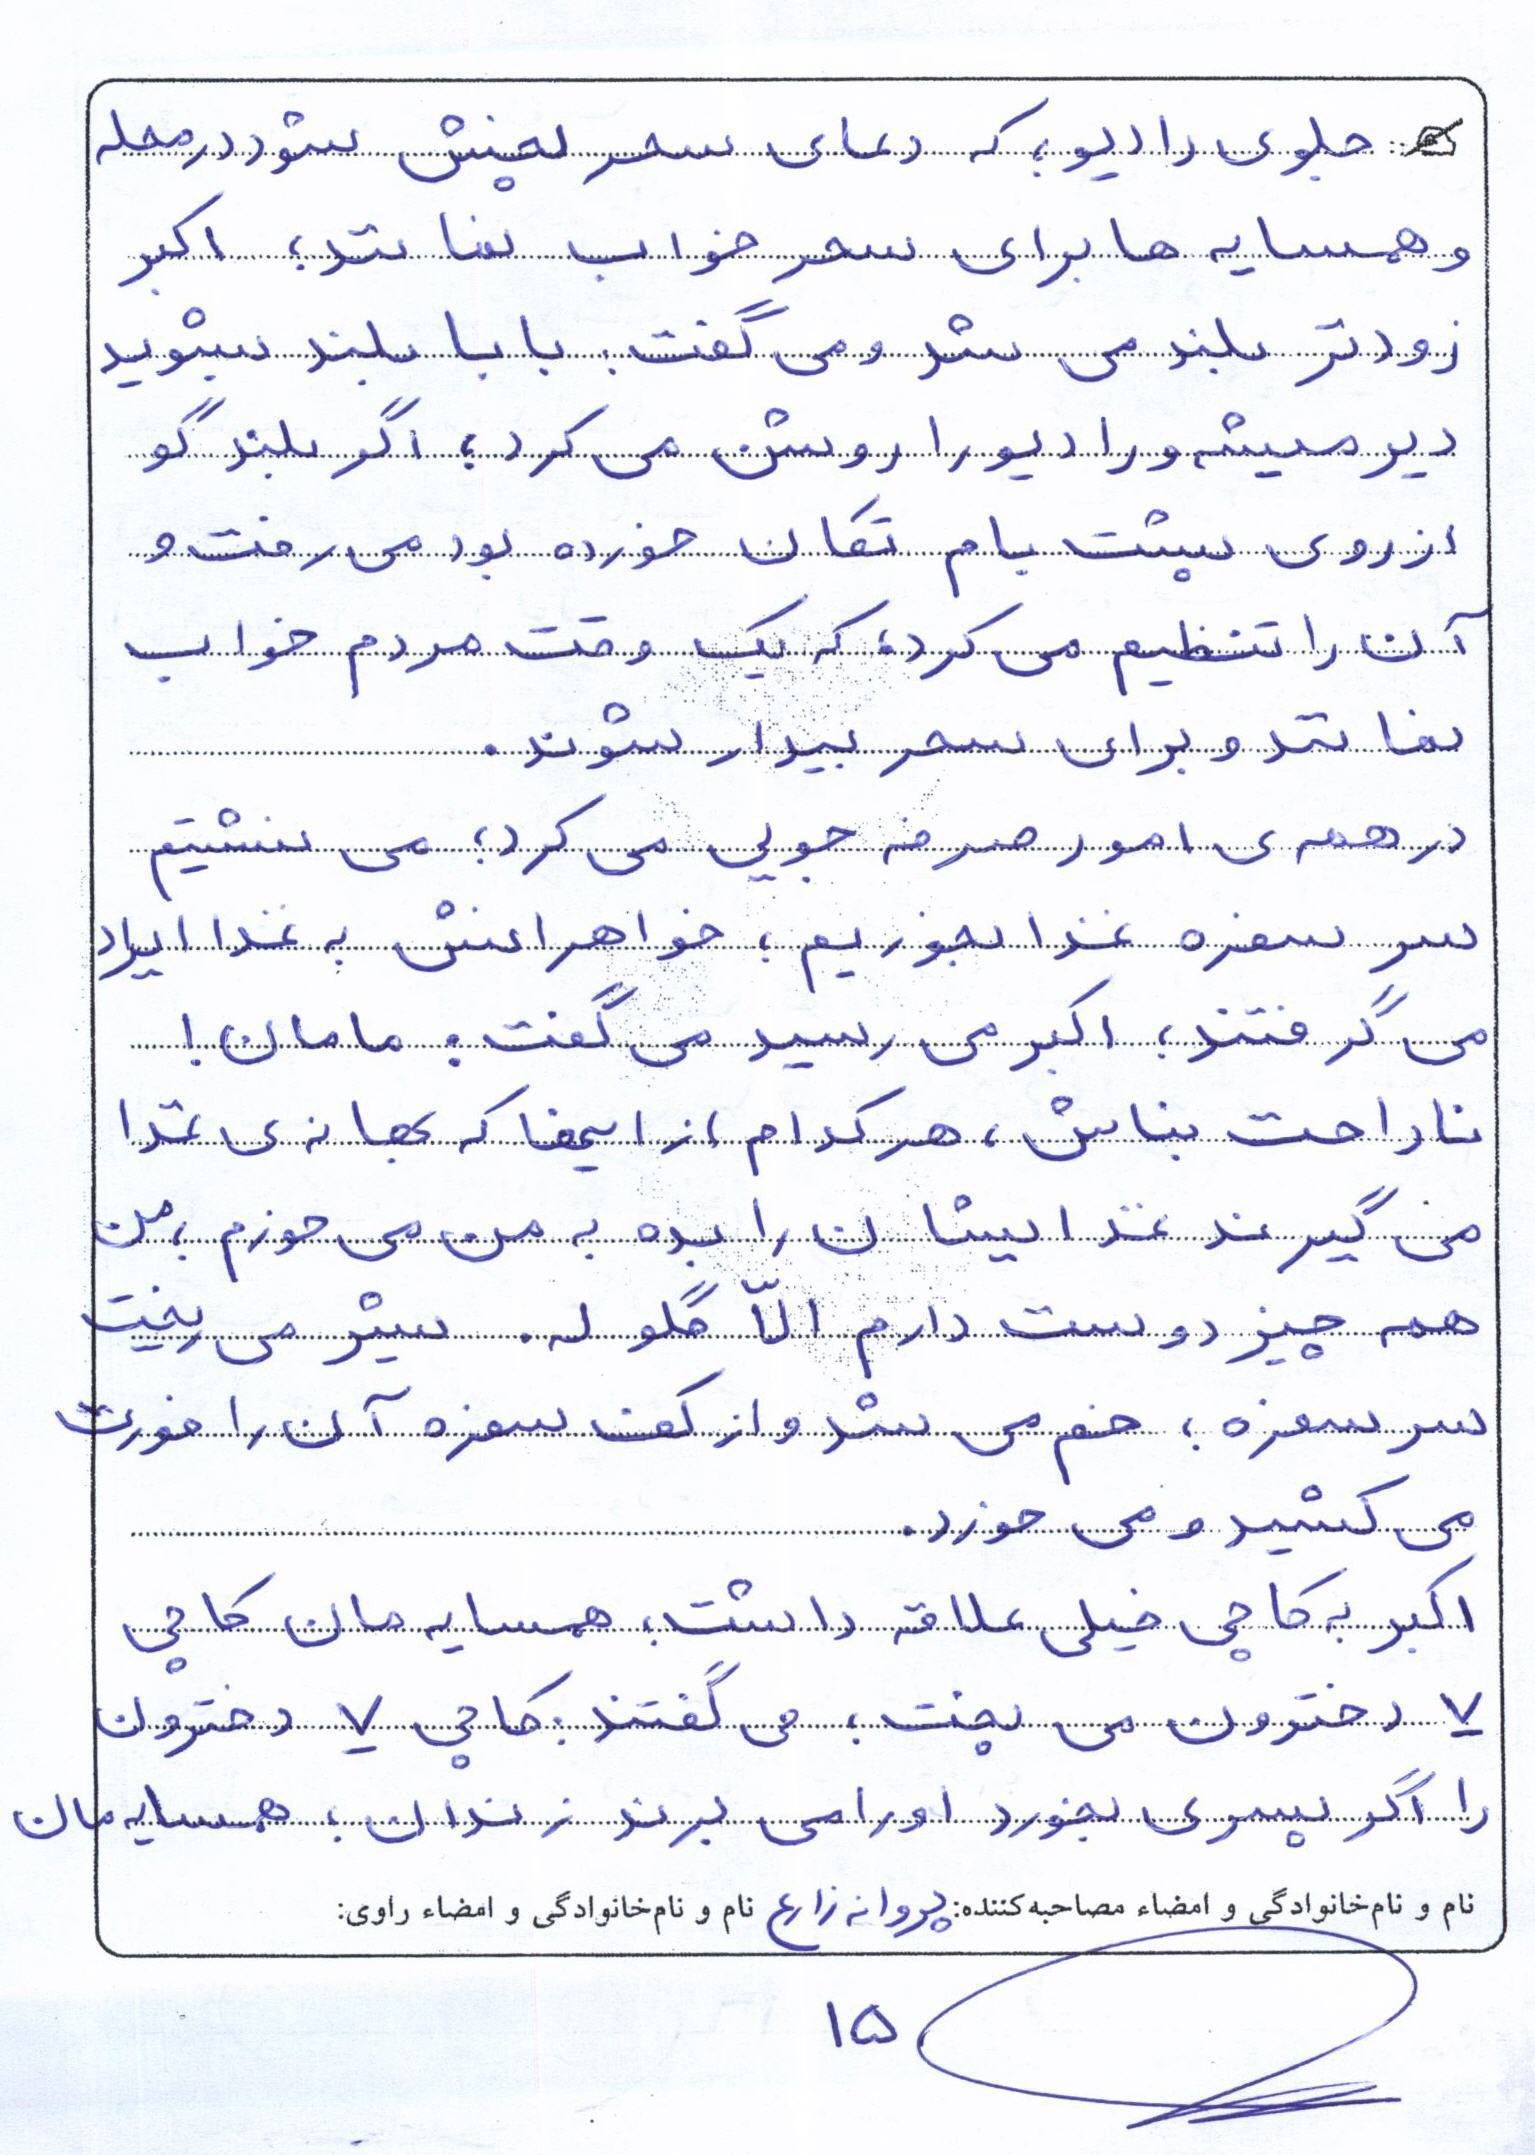 جلوی رادیو؛ که دعای سحر پخش شود در محله
و همسایه ها برای سحر خواب نمانند؛ اکبر
زودتر بلند می شد و می گفت: بابا بلند بشوید
دیر میشه و رادیو را روشن می کرد؛ اگر بلند گو
از روی پشت بام تکان خورده بود می رفت و
آن را تنظیم می کرد؛ که یک وقت مردم خواب
نمانند و برای سحر بیدار شوند.
در همه ی امور صرفه جویی می کرد؛ می نشستیم
سر سفره غذا بخوریم؛ خواهرانش به غذا ایراد
می گرفتند؛ اکبر می رسید می گفت: مامان!
ناراحت نباش، هر کدام از اینها که بهانه ی غذا
می گیرند غذایشان را بده به من می خورم؛ من
همه چیز دوست دارم الّا گلوله. شیر می ریخت
سر سفره؛ خم می شد و از کف سفره آن را هورت
می کشید و می خورد.
اکبر به کاچی خیلی علاقه داشت؛ همسایه مان کاچی
۷ دخترون می پخت؛ می گفتند: کاچی ۷ دخترون
را اگر پسری بخورد او را می برند زندان؛ همسایه مان
نام و نام‌خانوادگی و امضاء مصاحبه‌کننده: پروانه زارع نام و نام‌خانوادگی و امضاء راوی:
۱۵